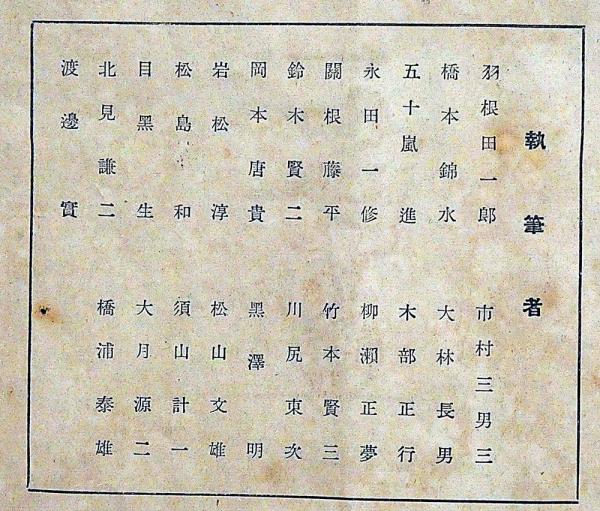 執筆者
羽根田一郎 市村三男三
橋本錦水 大林長男
五十嵐進 木部正行
永田一修 柳瀬正夢
關根藤平 竹本賢三
鈴木賢二 川尻東次
岡本唐貴 黑澤明
岩松淳 松山文雄
松島和 須山計一
目黑生 大月源二
北見謙二 橋浦泰雄
渡邊實